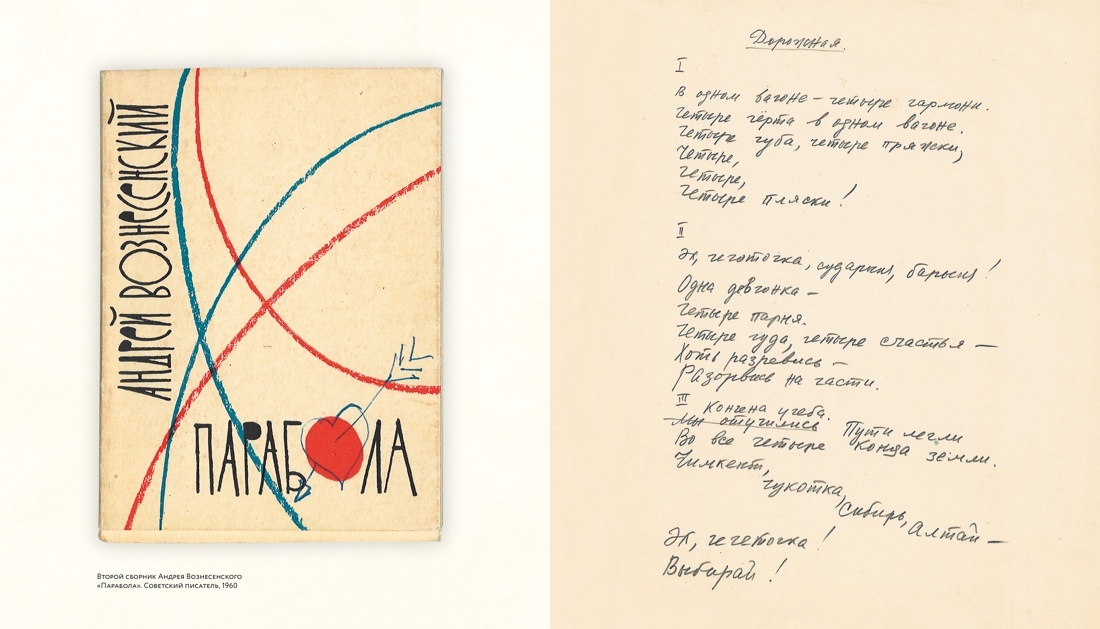 АНДРЕЙ ВОЗНЕСЕНСКИЙ
ПАРАБОЛА
Второй сборник Андрея Вознесенского
«Парабола». Советский писатель, 1960
Дорожная.
I
В одном вагоне – четыре гармони.
Четыре чёрта в одном вагоне.
Четыре чуба, четыре пряжки,
Четыре,
Четыре,
Четыре пляски!
II
Эх, чечоточка, сударыня, барыня!
Одна девчонка –
Четыре парня.
Четыре чуда, четыре счастья –
Хоть разревись –
Разорвись на части.
III
Кончена учеба.
Мы отучились Пути легли
Во все четыре конца земли.
Чимкент,
Чукотка,
Сибирь,
Алтай –
Эх, чечеточка!
Выбирай!